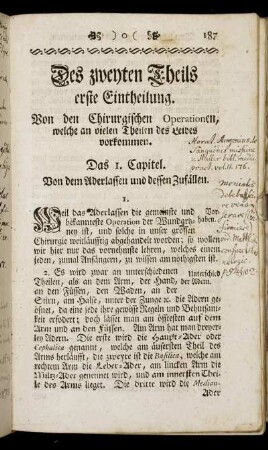 ) o (
187
Des zweyten Theils
erste Eintheilung.
Von den Chirurgischen Operationen,
welche an vielen Theilen des Leibes
vorkommen.
Das 1. Capitel.
Von dem Aderlassen und dessen Zufällen.
1.
Weil das Aderlassen die gemeinste und Vorhaben.
bekannteste Operation der Wundärzte
ist, und solche in unser grossen
Chirurgie weitläuffig abgehandelt worden: so wollen
wir hier nur das vornehmste lehren, welches einem
jeden, zumal Anfängern, zu wissen am nöthigsten ist.
2. Es wird zwar an unterschiedenen Unterschied
Theilen, als an dem Arm, der Hand, der Adern.
an den Füssen, den Waden, an der
Stirn, am Halse, unter der Zunge ꝛc. die Adern geöf-
net, da eine jede ihre gewisse Regeln und Behutsam-
keit erfodert; doch lässet man am öfftesten auf dem
Arm und an den Füssen. Am Arm hat man dreyer-
ley Adern. Die erste wird die Haupt-Ader oder
Cephalica genannt, welche am äusersten Theil des
Arms herläufft, die zweyte ist die Basilica, welche am
rechten Arm die Leber-Ader, am lincken Arm die
Miltz-Ader genennet wird, und am innersten Thei-
le des Arms lieget. Die dritte wird die Median-
Ader